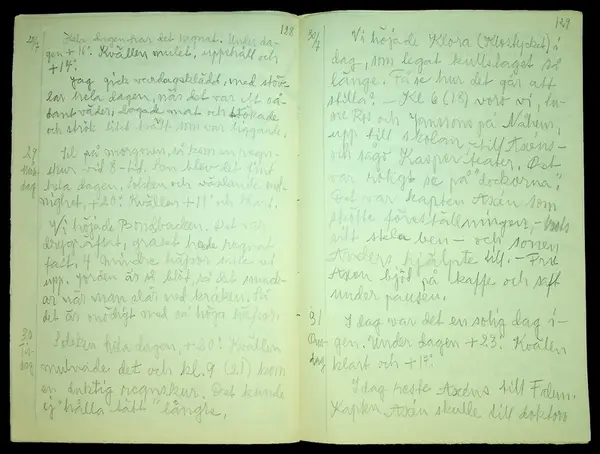 128
28/7
Hela dagen har det regnat. Under da-
gen +16°. Kvällen mulet, uppehåll och
+14°.
Jag gick vardagsklädd, med stöv-
lar hela dagen, när det var ett så-
dant väder, lagade mat och stökade
och strök litet tvätt, som var liggande.
29
dag
Sol på morgonen, så kom en regn-
skur vid 8-tid. Sen blev det
hela dagen. Solsken och växlande mol-
nighet, +20°. Kvällen +11° och klart.
Vi höjade Bondbacken. Det var
drygt räfst, gräset hade regnat
fast. 4 mindre häsjor satte vi
upp. Jorden är så blöt, så det smack-
ar när man slår med kräken. Så
det är mödigt med så höga hässjor.
30
Solsken hela dagen, +20°. Kvällen
mulnade det och kl. 9 (21) kom
en riktig regnskur. Det kunde
ej "hålla tätt" längre.
129
30/7
Vi höjade Klora (Klostycket) i
dag, som legat kullslaget så
länge. Få se hur det går att
stilla. – Kl 6 (18) voro vi, Tu-
re Ros och Janssons på Näbben,
upp till skolan till Axéns
och sågo Kasperteater. Det
var roligt se på "dockorna".
Det var kapten Axén som
skötte föreställningen, – trots
sitt skela ben – och sonen
Anders hjälpte till. – Fru
Axén bjöd på kaffe och saft
under pausen.
31
I dag var det en solig dag i-
gen. Under dagen +23°. Kvällen
klart och +17°.
I dag reste Axéns till Falun.
Kapten Axén skulle till doktorn